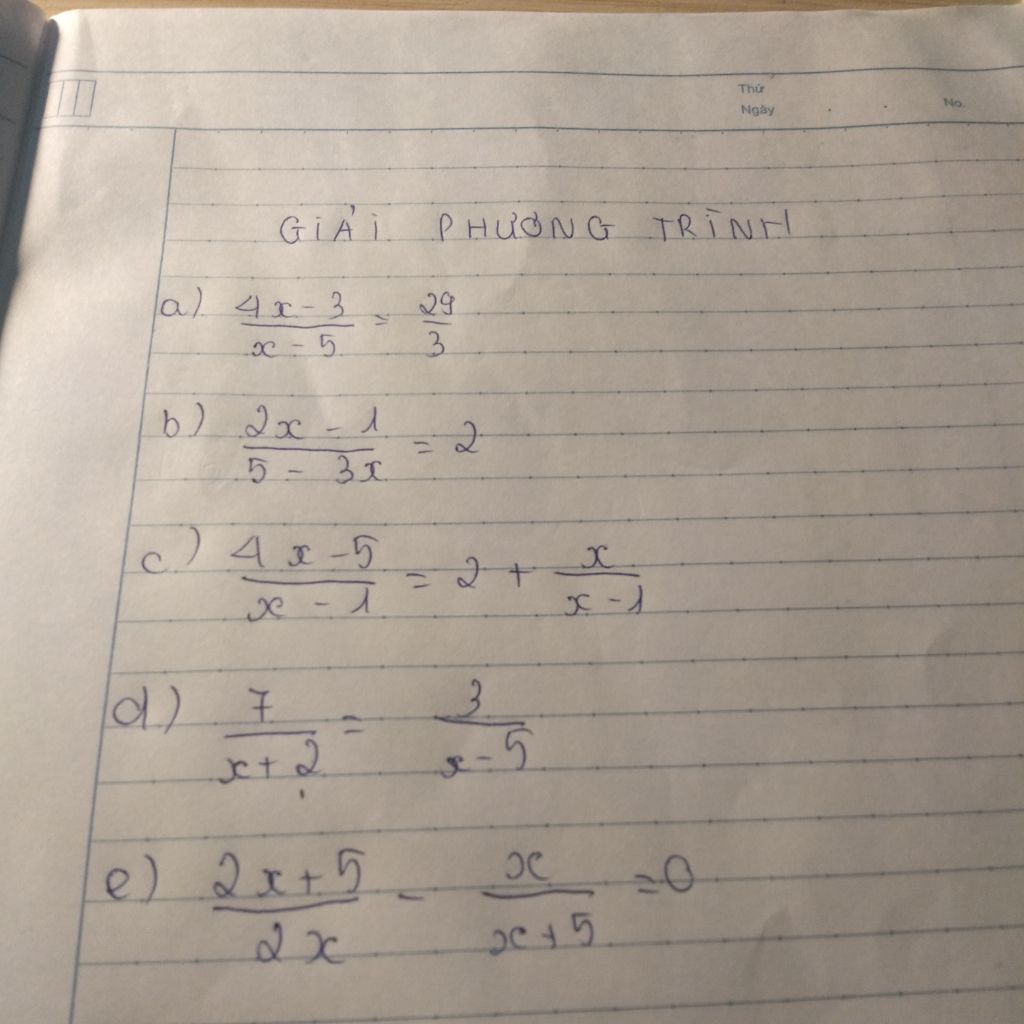 Thứ
Ngày
No.
GIẢI PHƯƠNG TRÌNH
a) \frac{4x-3}{x-5} = \frac{29}{3}
b) \frac{2x-1}{5-3x} = 2
c) \frac{4x-5}{x-1} = 2 + \frac{x}{x-1}
d) \frac{7}{x+2} = \frac{3}{x-5}
e) \frac{2x+5}{2x} - \frac{x}{x+5} = 0